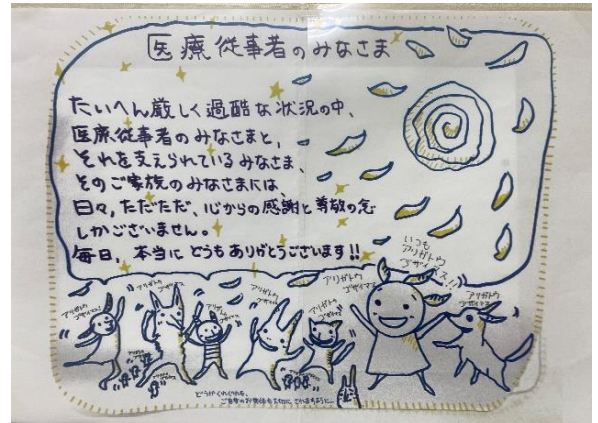 医療従事者のみなさま
たいへん厳しく過酷な状況の中、
医療従事者のみなさまと、
それを支えられているみなさま、
そのご家族のみなさまには、
日々、ただただ、心からの感謝と尊敬の念
しかございません。
毎日、本当にどうもありがとうございます!!
いつも
アリガトウ
ゴザイマス!!
アリガトウ
ゴザイマス
アリガトウ
ゴザイマス
アリガトウ
ゴザイマス
アリガトウ
アリガトウ
ゴザイマス
アリガトウ
ゴザイマス
どうかくれぐれも、
ご自身のお身体も大切にされますように…